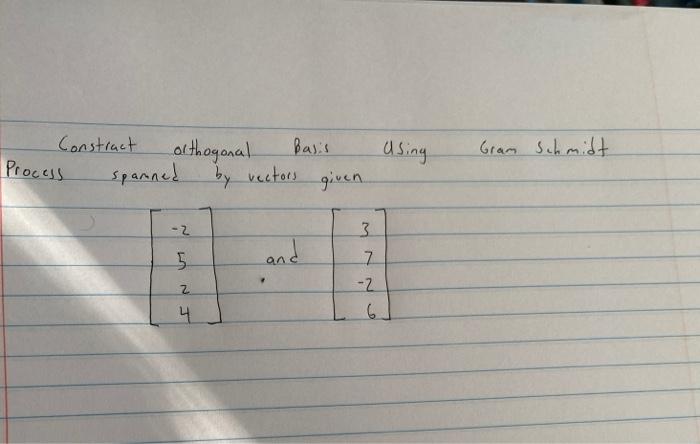 Construct orthogonal Basis Using Gram Schmidt
Process spanned by vectors given
-2 3
5 and 7
2 -2
4 6